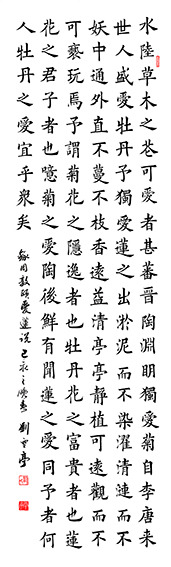 水陸草木之花可愛者甚蕃晉陶淵明獨愛菊自李唐來
世人盛愛牡丹予獨愛蓮之出淤泥而不染濯清漣而不
妖中通外直不蔓不枝香遠益清亭亭靜植可遠觀而不
可褻玩焉予謂菊花之隱逸者也牡丹花之富貴者也蓮
花之君子者也噫菊之愛陶後鮮有聞蓮之愛同予者何
人牡丹之愛宜乎眾矣
錄周敦頤愛蓮說